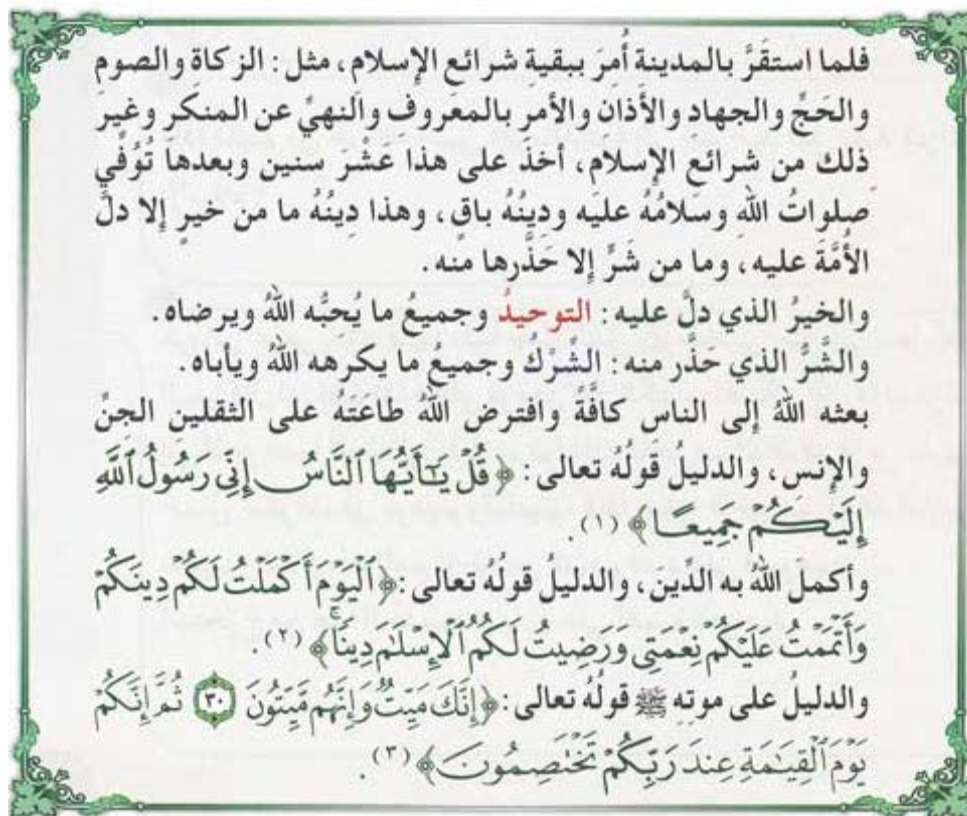 فلما استقَرَّ بالمدينة أُمِرَ ببقيةِ شرائعِ الإسلام، مثل: الزكاة والصومِ
والحَجِّ والجهاد والأذان والأمرِ بالمعروف والنهيِّ عن المنكَرِ وغير
ذلك من شرائعِ الإسلام، أخذَ على هذا عَشْرَ سنين وبعدها تُوُفِّي
صلواتُ اللهِ وسَلامُهُ عليه ودِينُهُ باقٍ، وهذا دِينُهُ ما من خيرٍ إلا دلَّ
الأُمَّةَ عليه، وما من شَرٍّ إلا حَذَّرها منه.
والخيرُ الذي دلَّ عليه: التوحيدُ وجميعُ ما يُحبُّه اللهُ ويرضاه.
والشَّرُّ الذي حَذَّر منه: الشِّرْكُ وجميعُ ما يكرهه اللهُ ويأباه.
بعثه اللهُ إلى الناس كافَّةً وافترض اللهُ طاعته على الثقلينِ الجِنِّ
والإنس، والدليلُ قولُهُ تعالى: ﴿قُلْ يَٰٓأَيُّهَا ٱلنَّاسُ إِنِّى رَسُولُ ٱللَّهِ
إِلَيْكُمْ جَمِيعًا﴾ (١).
وأكمل اللهُ به الدِّين، والدليلُ قولُهُ تعالى: ﴿ٱلْيَوْمَ أَكْمَلْتُ لَكُمْ دِينَكُمْ
وَأَتْمَمْتُ عَلَيْكُمْ نِعْمَتِى وَرَضِيتُ لَكُمُ ٱلْإِسْلَٰمَ دِينًا﴾ (٢).
والدليلُ على موته ﷺ قولُهُ تعالى: ﴿إِنَّكَ مَيِّتٌ وَإِنَّهُم مَّيِّتُونَ ٣٠ ثُمَّ إِنَّكُمْ
يَوْمَ ٱلْقِيَٰمَةِ عِندَ رَبِّكُمْ تَخْتَصِمُونَ﴾ (٣).